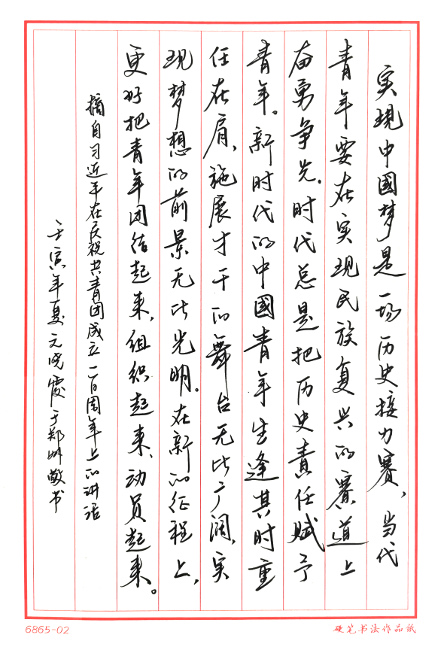 实现中國梦是一场历史接力赛，当代
青年要在实现民族复兴的赛道上
奋勇争先。时代总是把历史责任赋予
青年。新时代的中國青年生逢其时重
任在肩，施展才干的舞台无比广阔，实
现梦想的前景无比光明。在新的征程上，
更好把青年团结起来，组织起来、动员起来。
摘自习近平在庆祝共青团成立一百周年上的讲话
壬寅年夏元晓霞于郑州敬书
6865-02
硬笔书法作品纸